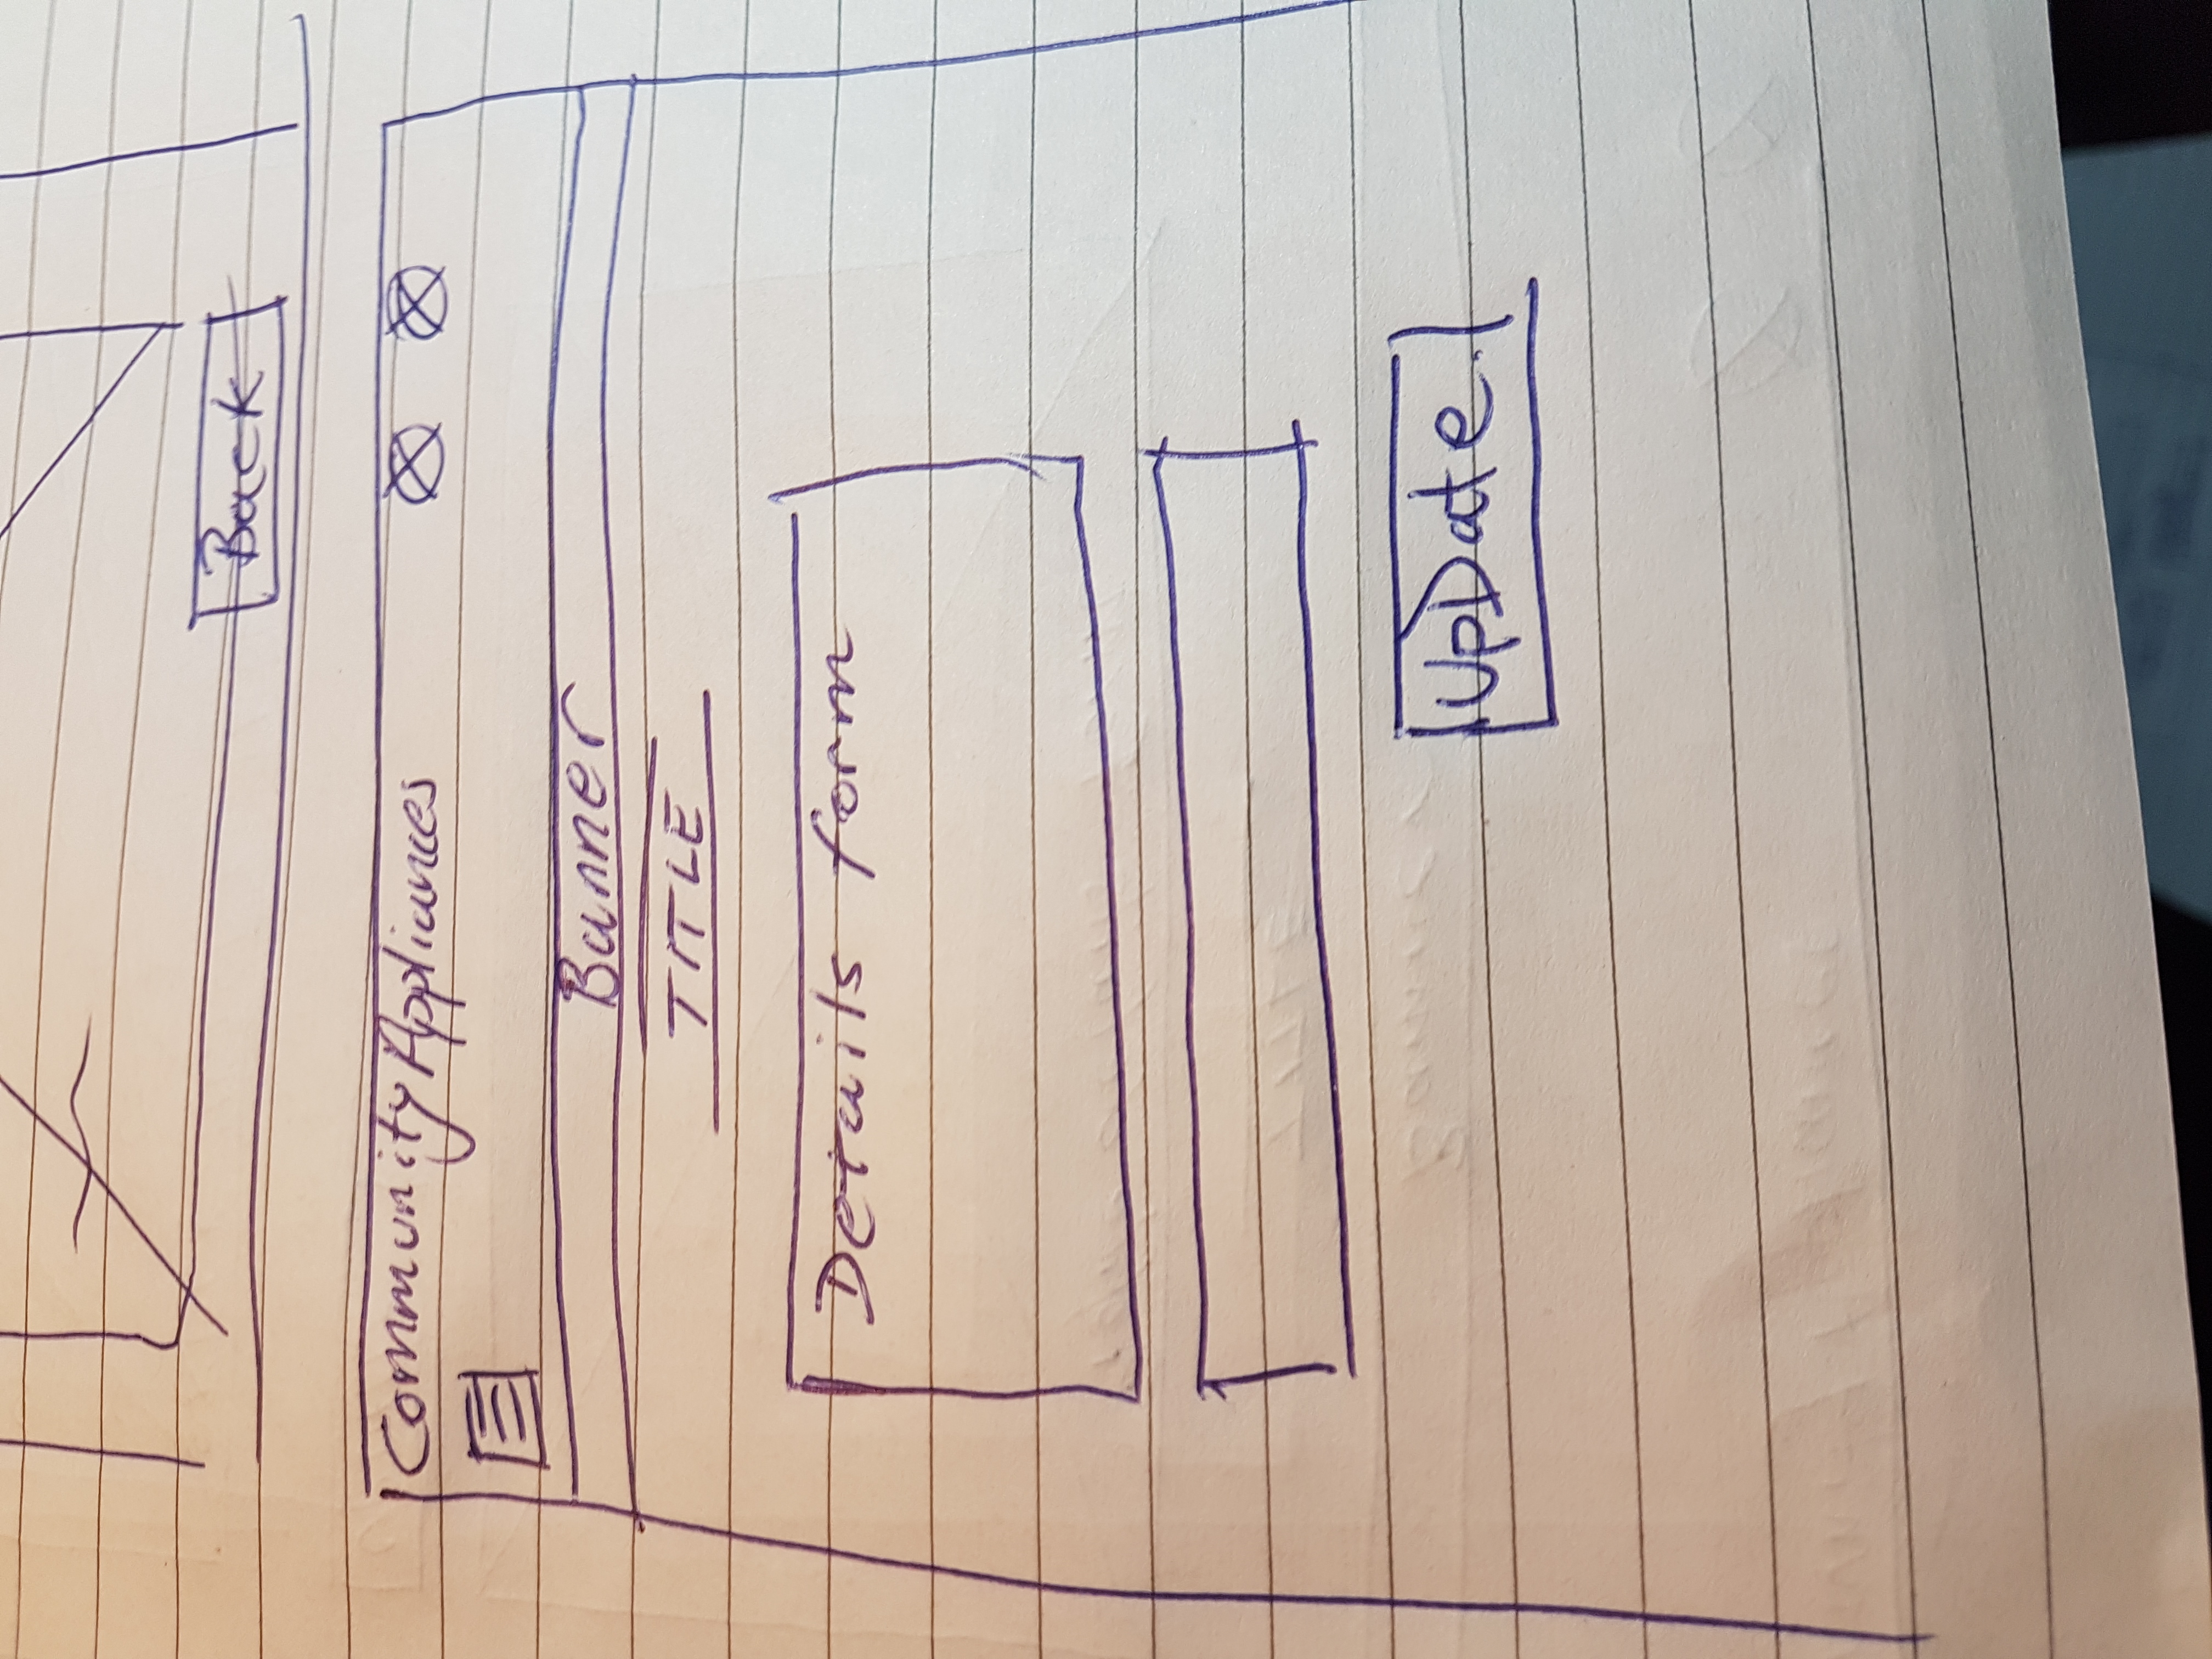 Back
Community Appliances
Banner
TITLE
Details form
UpDate.